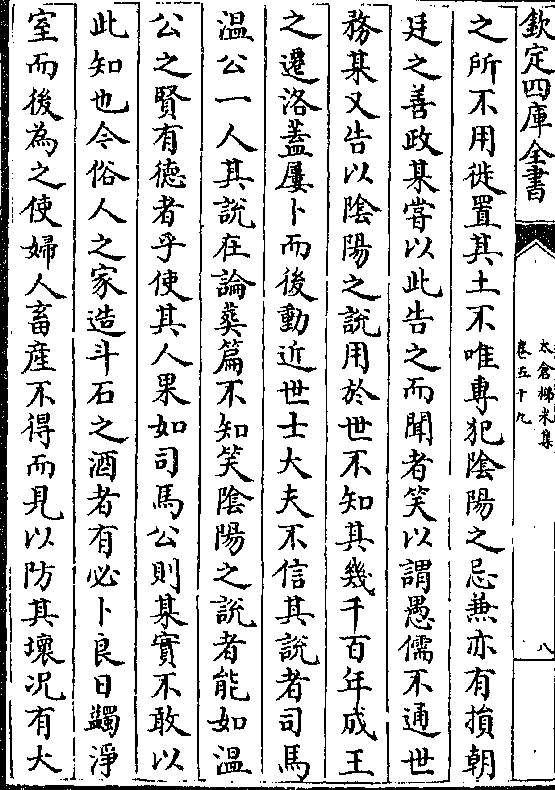 欽定四庫全書
太倉稊米集
卷五十九
八
之所不用徙置其土不唯專犯陰陽之忌兼亦有損朝
廷之善政某嘗以此告之而聞者笑以謂愚儒不通世
務某又告以陰陽之說用於世不知其幾千百年成王
之遷洛蓋屢卜而後動近世士大夫不信其說者司馬
温公一人其說在論葬篇不知笑陰陽之說者能如温
公之賢有德者乎使其人果如司馬公則某實不敢以
此知也令俗人之家造斗石之酒者有必卜良日蠲淨
室而後為之使婦人畜産不得而見以防其壞况有大